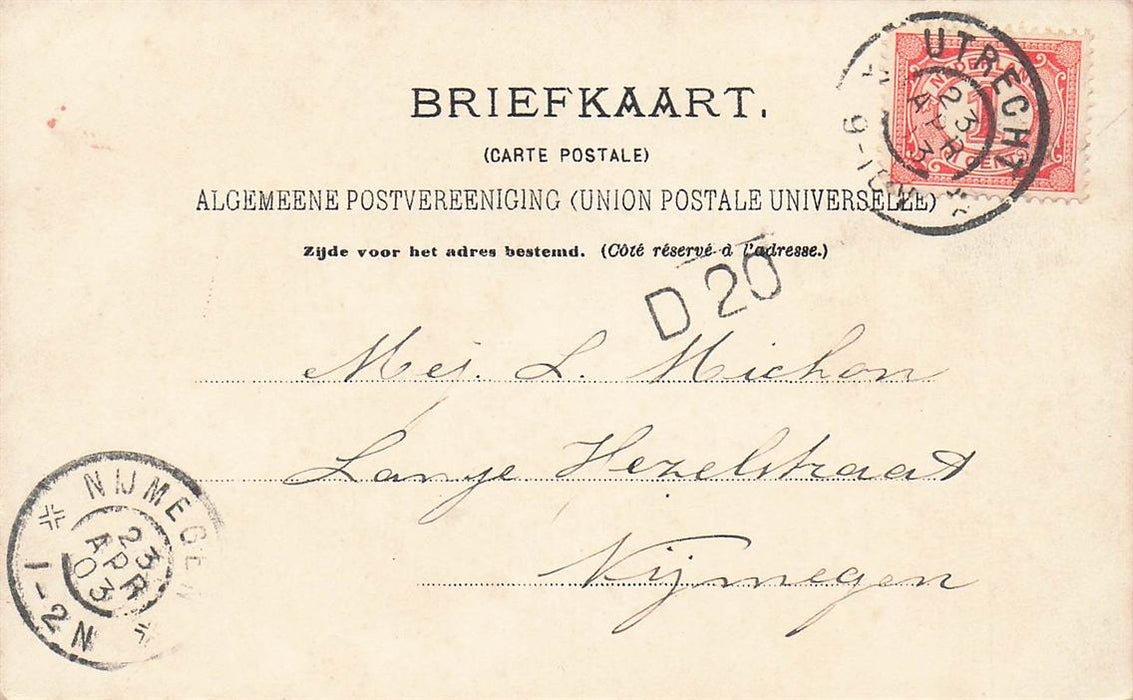 BRIEFKAART.
(CARTE POSTALE)
ALGEMEENE POSTVEREENIGING (UNION POSTALE UNIVERSELLE)
Zijde voor het adres bestemd. (Côté réservé à l'adresse.)
UTRECHT
23 APR
9-10V
NEDERLAND
1
CENT
D 20
Mej. L. Michon
Lange Hezelstraat
Nijmegen
NIJMEGEN
23 APR 03
1-2N